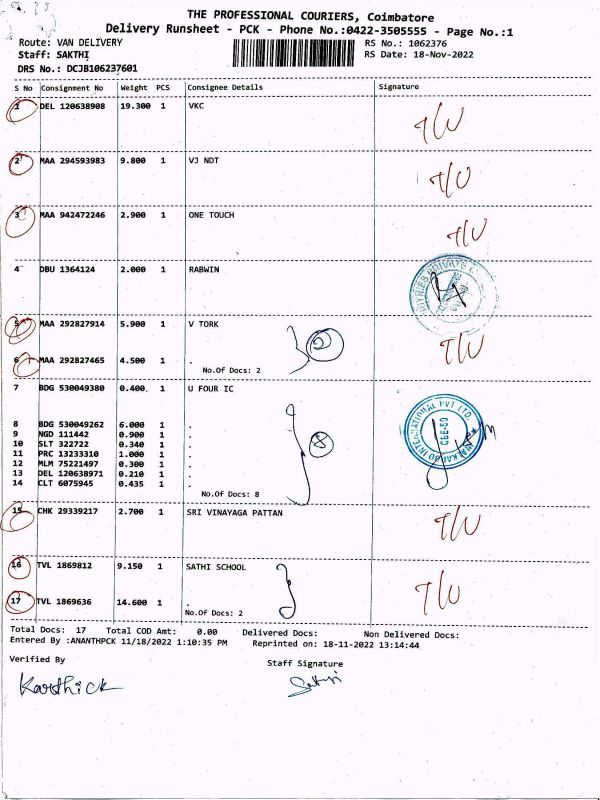 THE PROFESSIONAL COURIERS, Coimbatore
Delivery Runsheet - PCK - Phone No.:0422-3505555 - Page No.:1
Route: VAN DELIVERY RS No.: 1062376
Staff: SAKTHI RS Date: 18-Nov-2022
DRS No.: DCJB106237601
S No Consignment No Weight PCS Consignee Details Signature
1 DEL 120638908 19.300 1 VKC T/U
2 MAA 294593983 9.800 1 VJ NDT T/U
3 MAA 942472246 2.900 1 ONE TOUCH T/U
4 DBU 1364124 2.000 1 RABWIN
5 MAA 292827914 5.900 1 V TORK T/U
6 MAA 292827465 4.500 1 .
No.Of Docs: 2
7 BDG 530049380 0.400 1 U FOUR IC
8 BDG 530049262 6.000 1 .
9 NGD 111442 0.900 1 .
10 SLT 322722 0.340 1 .
11 PRC 13233310 1.000 1 .
12 MLM 75221497 0.300 1 .
13 DEL 120638971 0.210 1 .
14 CLT 6075945 0.435 1 .
No.Of Docs: 8
15 CHK 29339217 2.700 1 SRI VINAYAGA PATTAN T/U
16 TVL 1869812 9.150 1 SATHI SCHOOL T/U
17 TVL 1869636 14.600 1 .
No.Of Docs: 2
Total Docs: 17 Total COD Amt: 0.00 Delivered Docs: Non Delivered Docs:
Entered By :ANANTHPCK 11/18/2022 1:10:35 PM Reprinted on: 18-11-2022 13:14:44
Verified By Staff Signature
Karthick